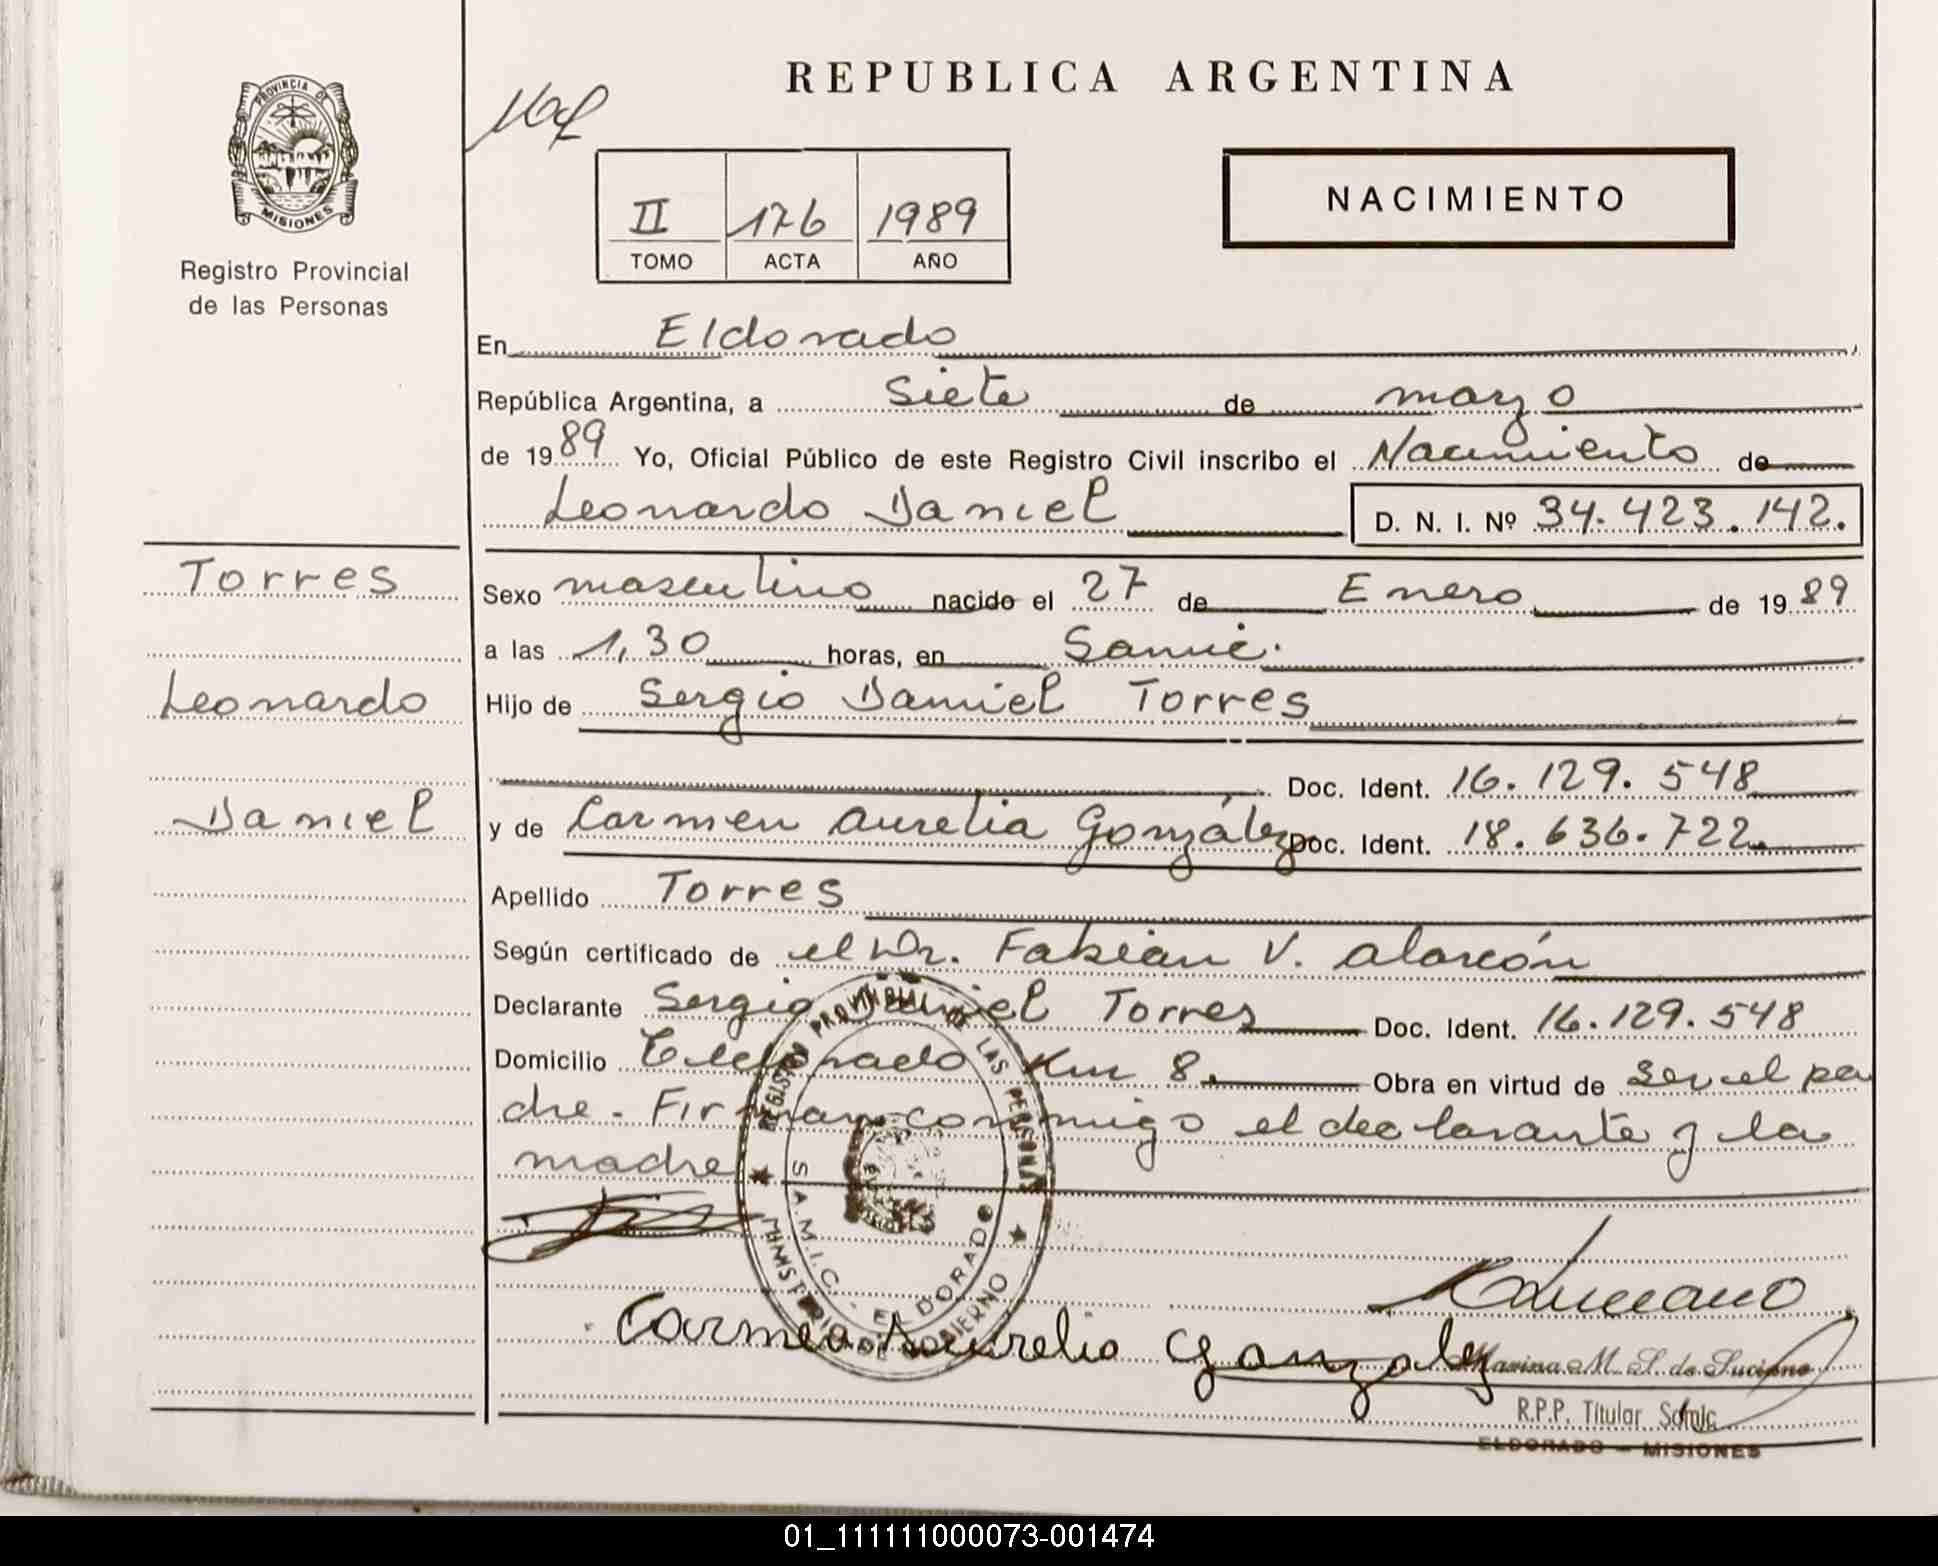 PROVINCIA DE
MISIONES
Registro Provincial
de las Personas
REPUBLICA ARGENTINA
NACIMIENTO
II 176 1989
TOMO ACTA AÑO
En Eldorado
República Argentina, a siete de marzo
de 1989 Yo, Oficial Público de este Registro Civil inscribo el Nacimiento de
Leonardo Daniel D. N. I. Nº 34.423.142.
Torres
Leonardo
Daniel
Sexo masculino nacido el 27 de Enero de 1989
a las 1,30 horas, en Samic.
Hijo de Sergio Daniel Torres
Doc. Ident. 16.129.548
y de Carmen Aurelia González Doc. Ident. 18.636.722
Apellido Torres
Según certificado de el Dr. Fabián V. Alarcón
Declarante Sergio Daniel Torres Doc. Ident. 16.129.548
Domicilio Eldorado Km 8. Obra en virtud de ser el pa
dre. Firman conmigo el declarante y la
madre
REGISTRO PROVINCIAL DE LAS PERSONAS
S.A.M.I.C. - ELDORADO
MINISTERIO DE GOBIERNO
Carmen Aurelia Gonzalez
Marina M. S. de Luciano
R.P.P. Titular Samic
ELDORADO - MISIONES
01_111111000073-001474